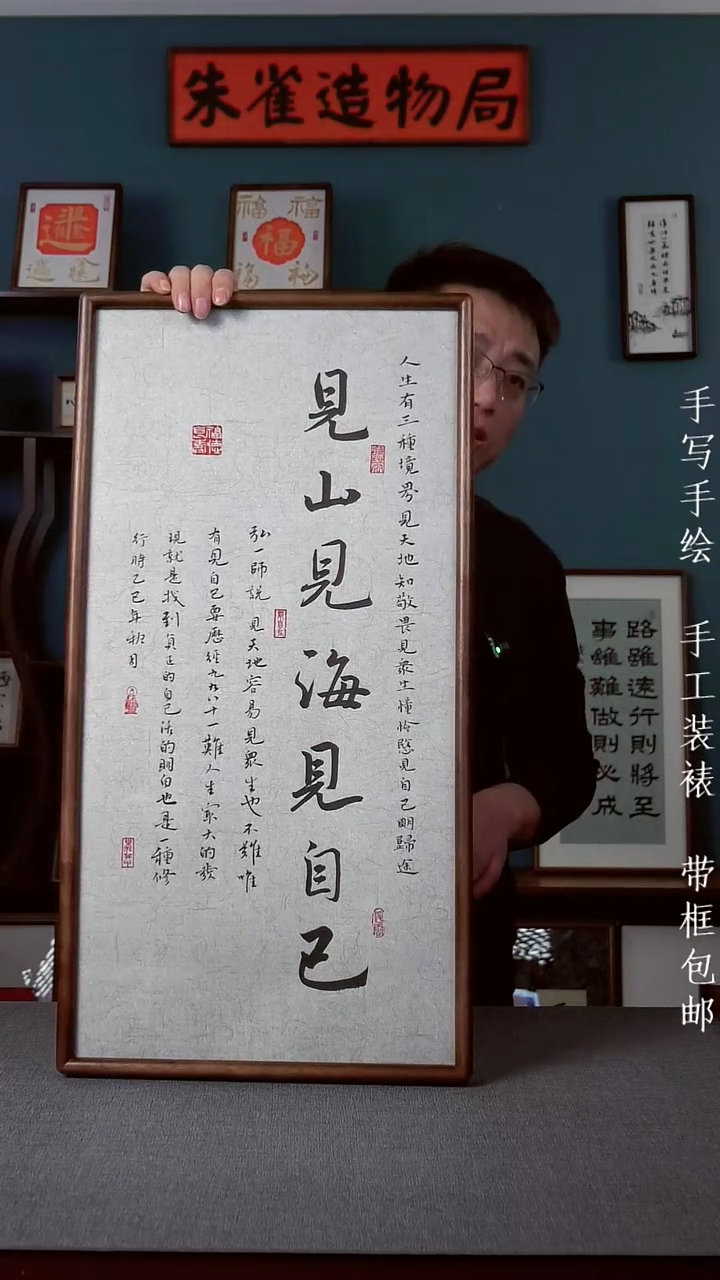 朱雀造物局
福
福
福
福
人生有三種境界見天地知敬畏見衆生憧怜愍見自己明歸途
見山見海見自己
弘一師說見天地容易見衆生也不難唯
有見自己要歷經九九八十一難人生最大的發
現就是找到真正的自己活的明白也是一種修
行時乙巳年秋月
路雖遠行則將至
事雖難做則必成
手写手绘 手工装裱 带框包邮